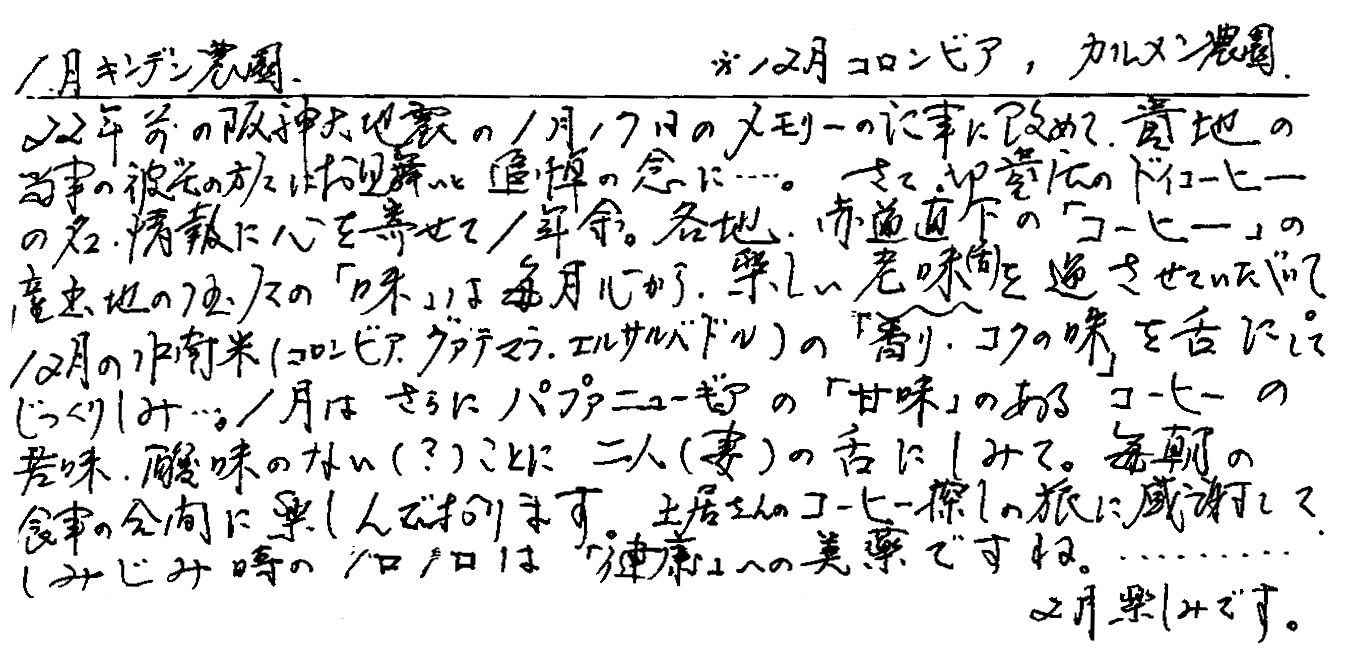 1月キンデン農園.　※12月コロンビア,カルメン農園.
22年前の阪神大地震の1月17日のメモリーの記事に改めて.貴地の
当事の被災の方々にはお見舞いと追悼の念に……。さて.貴店のドイコーヒー
の名.情報に心を寄せて1年余。各地.赤道直下の「コーヒー」の
産出地の「味」は毎月心から.楽しい老味(筒)を過させていただいて
12月の中南米(コロンビア.グァテマラ.エルサルバドル)の「香り.コクの味」を舌にして
じっくりしみ…。1月はさらにパプァニューギアの「甘味」のあるコーヒーの
苦味.酸味のない(?)ことに二人(妻)の舌にしみて。毎朝の
食事の合間に楽しんでおります。土居さんのコーヒー探しの旅に感謝して
しみじみ時の ノロノロは「健康」への美薬ですね。………
2月楽しみです。